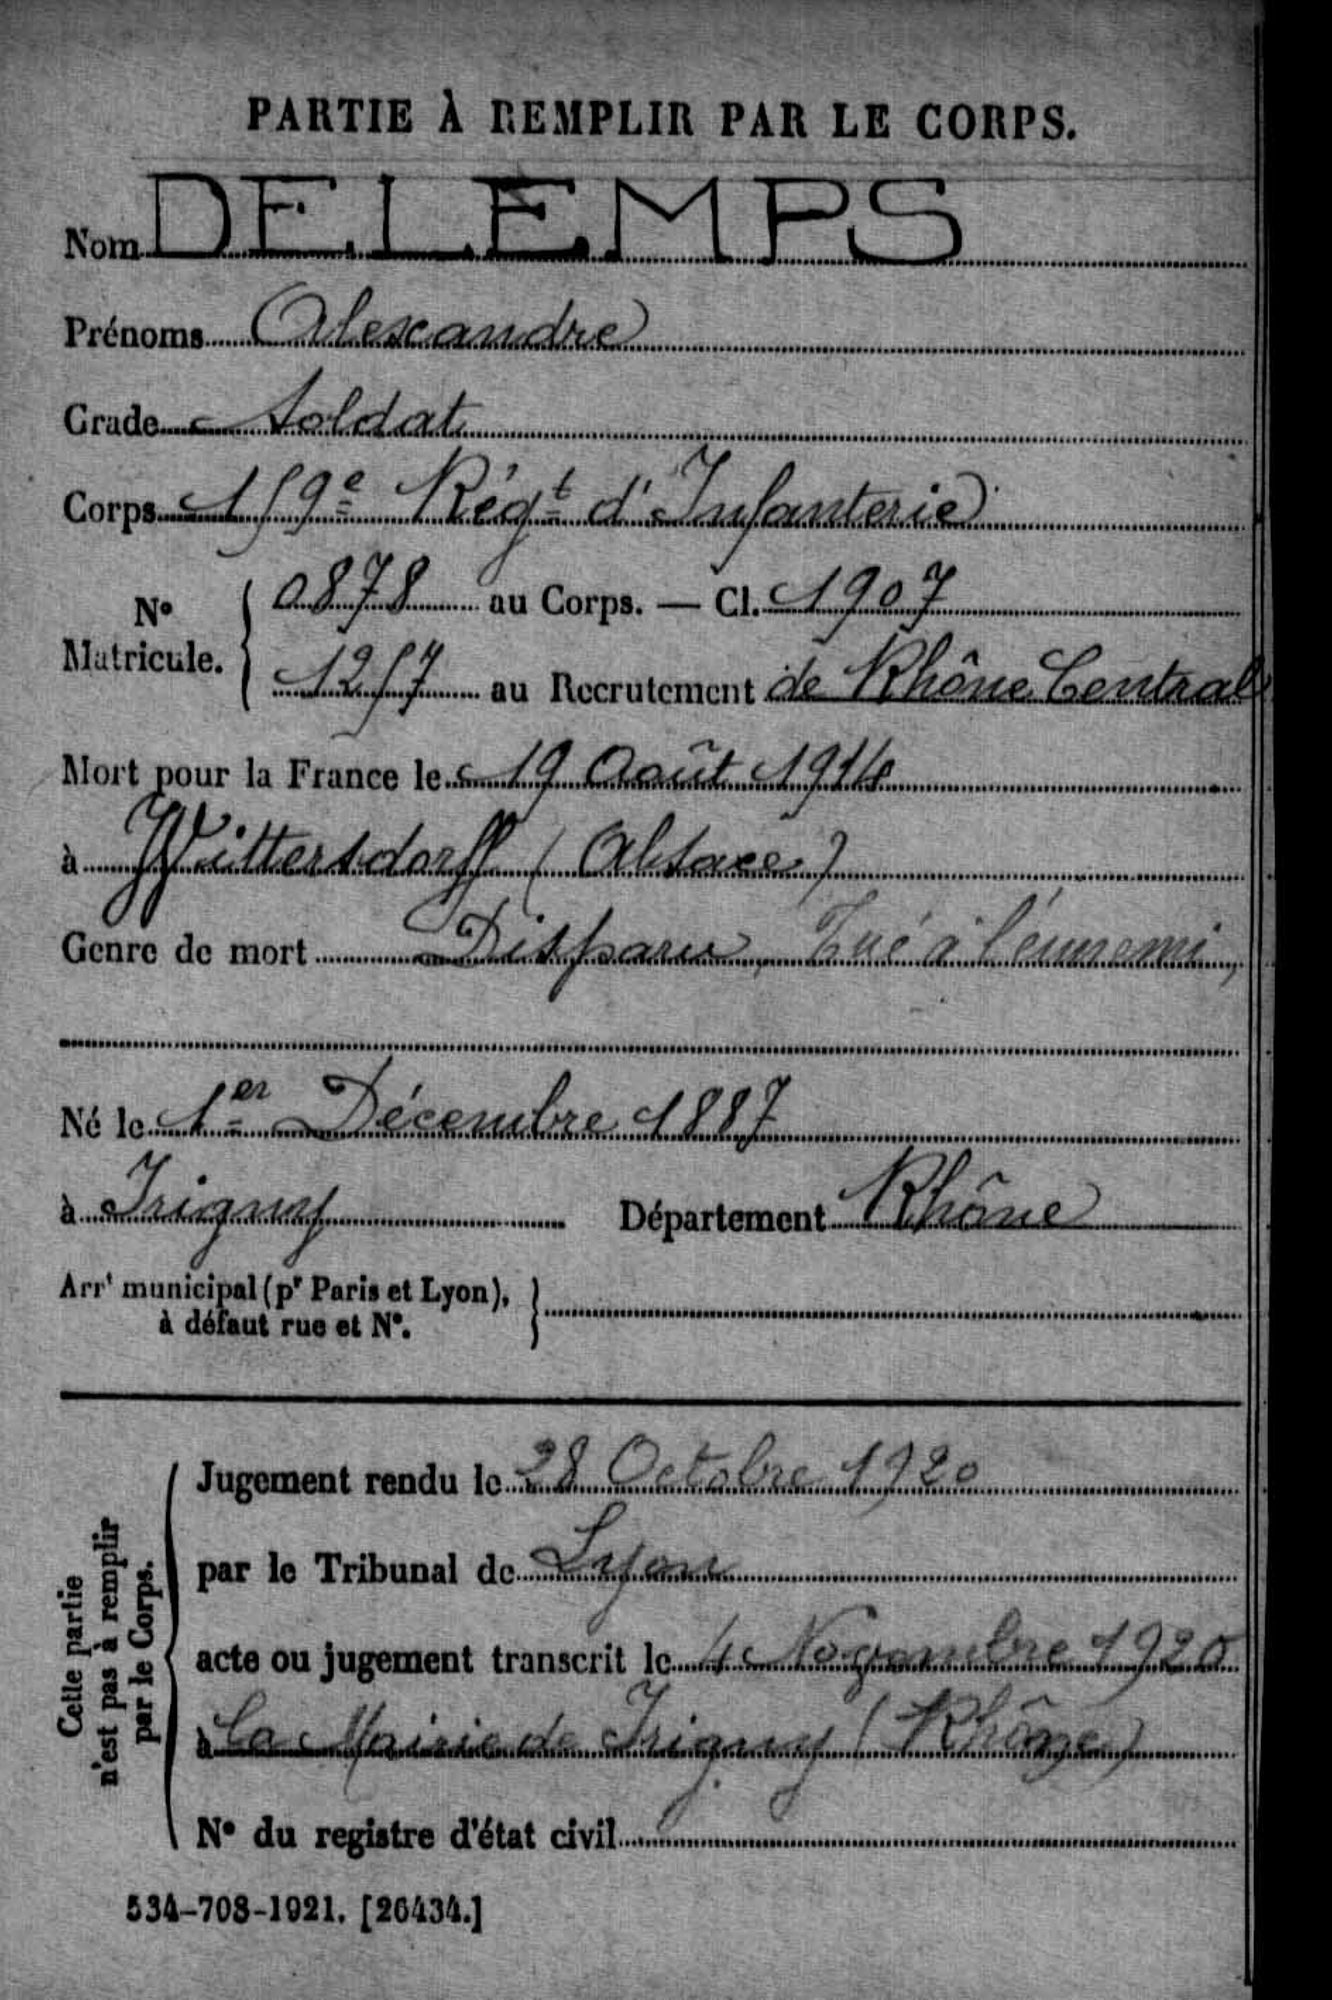 PARTIE À REMPLIR PAR LE CORPS.
Nom DELEMPS
Prénoms Alexandre
Grade Soldat
Corps 159e Régt d'Infanterie
No Matricule. { 0878 au Corps. — Cl. 1907
1257 au Recrutement de Rhône Central
Mort pour la France le 19 Août 1914
à Wittersdorff (Alsace)
Genre de mort Disparu, Tué à l'ennemi,
Né le 1er Décembre 1887
à Irigny Département Rhône
Arrt municipal (pr Paris et Lyon), }
à défaut rue et No.
Cette partie
n'est pas à remplir
par le Corps.
Jugement rendu le 28 Octobre 1920
par le Tribunal de Lyon
acte ou jugement transcrit le 4 Novembre 1920
à la Mairie de Irigny (Rhône)
No du registre d'état civil
534-708-1921. [26434.]